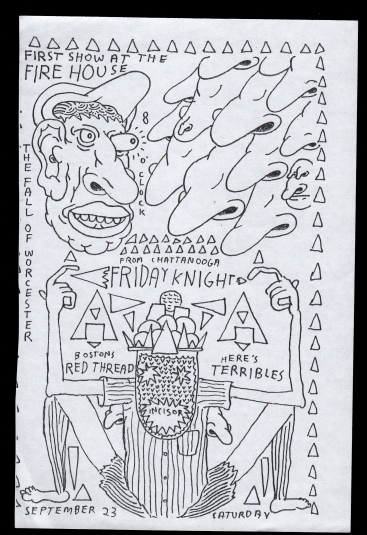 FIRST SHOW AT THE
FIRE HOUSE
8
O'CLOCK
THE FALL OF WORCESTER
FROM CHATTANOOGA
FRIDAY KNIGHT
BOSTONS
RED THREAD
HERE'S
TERRIBLES
INCISOR
SEPTEMBER 23
SATURDAY